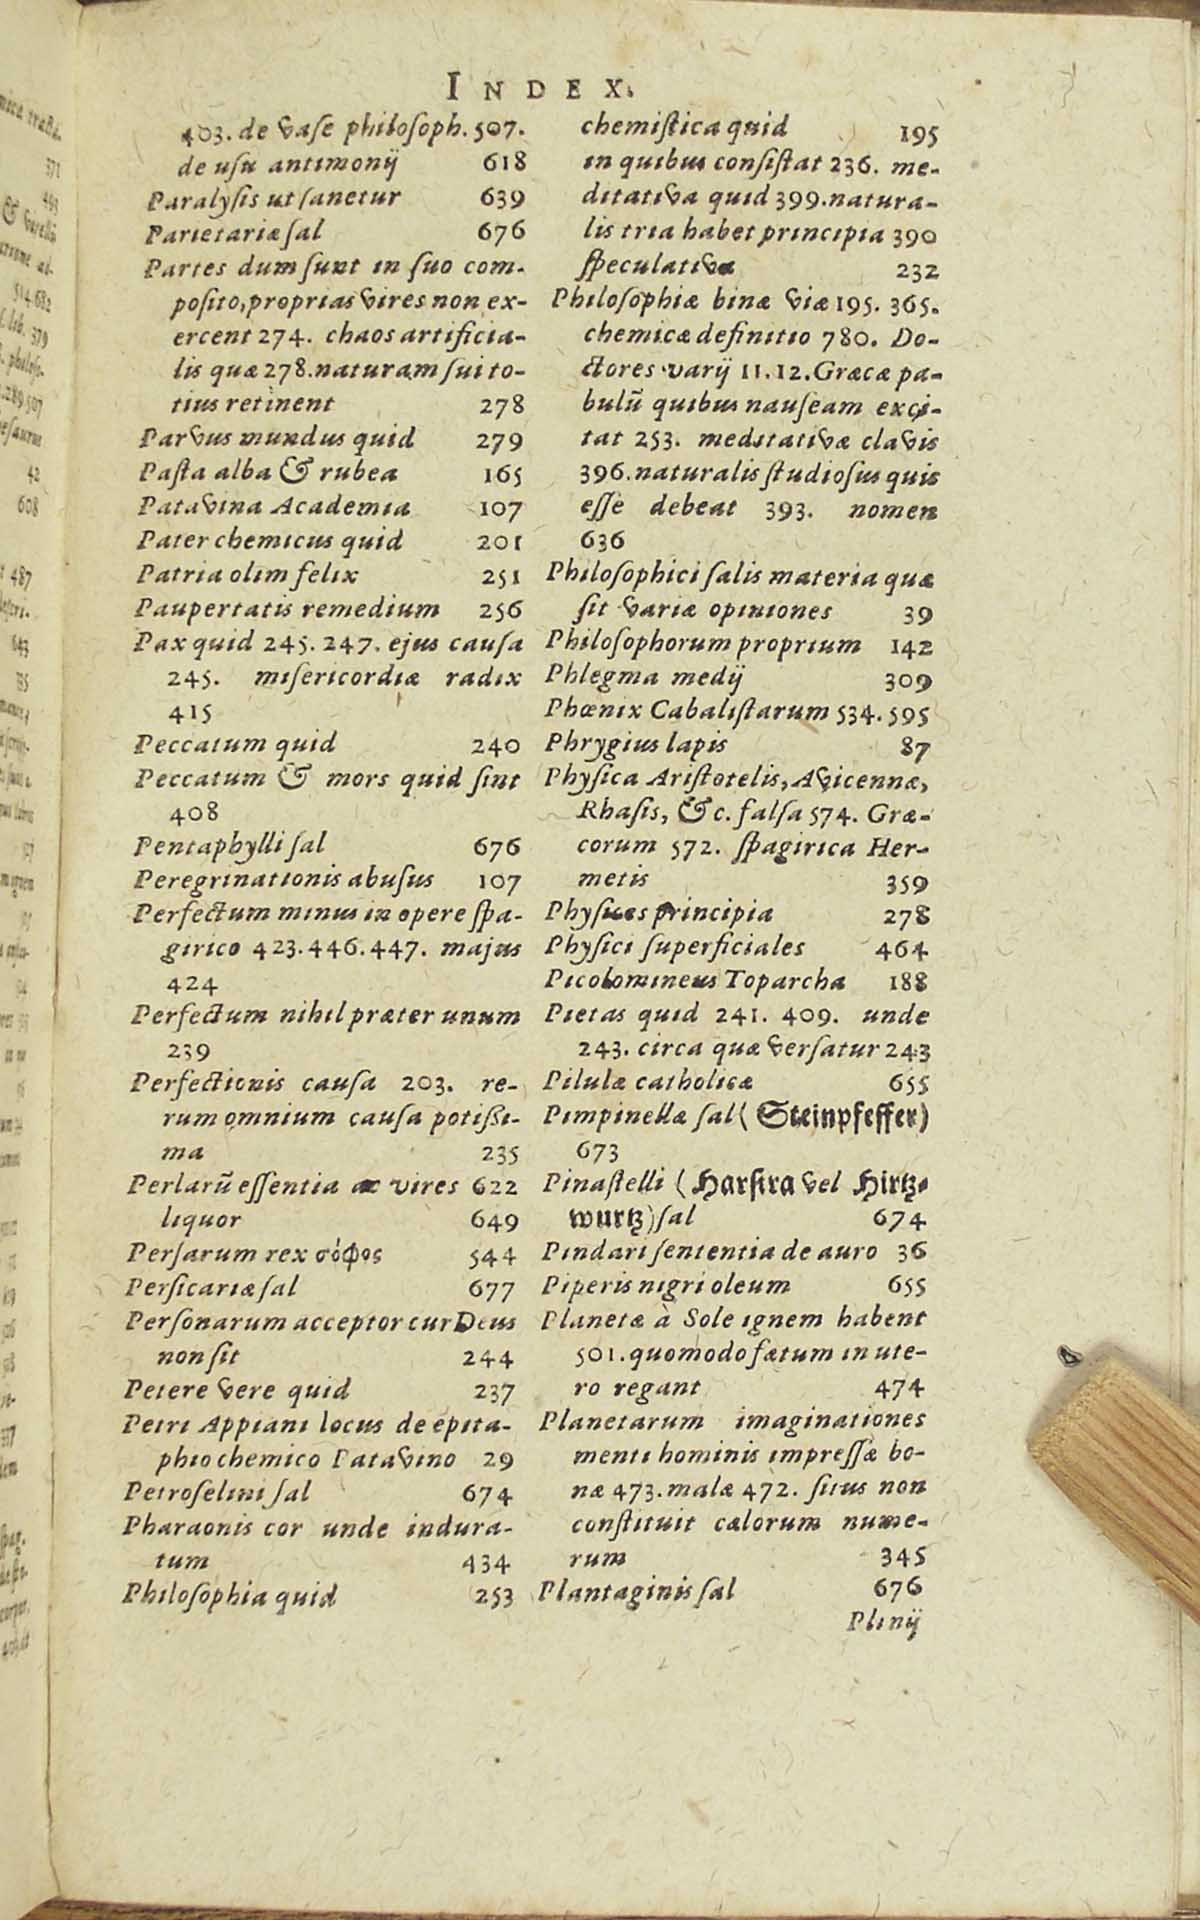 INDEX.
403. de vase philosoph. 507.
de usu antimonij 618
Paralysis ut sanetur 639
Parietariæ sal 676
Partes dum sunt in suo com-
posito, proprias vires non ex-
ercent 274. chaos artificia-
lis quæ 278. naturam sui to-
tius retinent 278
Parvus mundus quid 279
Pasta alba & rubea 165
Patavina Academia 107
Pater chemicus quid 201
Patria olim felix 251
Paupertatis remedium 256
Pax quid 245. 247. ejus causa
245. misericordiæ radix
415
Peccatum quid 240
Peccatum & mors quid sint
408
Pentaphylli sal 676
Peregrinationis abusus 107
Perfectum minus in opere spa-
girico 423. 446. 447. majus
424
Perfectum nihil præter unum
239
Perfectionis causa 203. re-
rum omnium causa potißi-
ma 235
Perlarũ essentia ac vires 622
liquor 649
Persarum rex σόφος 544
Persicariæ sal 677
Personarum acceptor cur Deus
non sit 244
Petere vere quid 237
Petri Appiani locus de epita-
phio chemico Patavino 29
Petroselini sal 674
Pharaonis cor unde indura-
tum 434
Philosophia quid 253
chemistica quid 195
in quibus consistat 236. me-
ditativa quid 399. natura-
lis tria habet principia 390
speculativa 232
Philosophiæ binæ viæ 195. 365.
chemicæ definitio 780. Do-
ctores varij 11. 12. Græcæ pa-
bulũ quibus nauseam exci-
tat 253. meditativæ clavis
396. naturalis studiosus quis
esse debeat 393. nomen
636
Philosophici salis materia quæ
sit variæ opiniones 39
Philosophorum proprium 142
Phlegma medij 309
Phœnix Cabalistarum 534. 595
Phrygius lapis 87
Physica Aristotelis, Avicennæ,
Rhasis, &c. falsa 574. Græ-
corum 572. spagirica Her-
metis 359
Physices principia 278
Physici superficiales 464
Picolomineus Toparcha 188
Pietas quid 241. 409. unde
243. circa quæ versatur 243
Pilulæ catholicæ 655
Pimpinellæ sal (Steinpfeffer)
673
Pinastelli (Harstra vel Hirtz-
wurtz) sal 674
Pindari sententia de auro 36
Piperis nigri oleum 655
Planetæ à Sole ignem habent
501. quomodo fætum in ute-
ro regant 474
Planetarum imaginationes
menti hominis impressæ bo-
næ 473. malæ 472. situs non
constituit cælorum nume-
rum 345
Plantaginis sal 676
Plinij